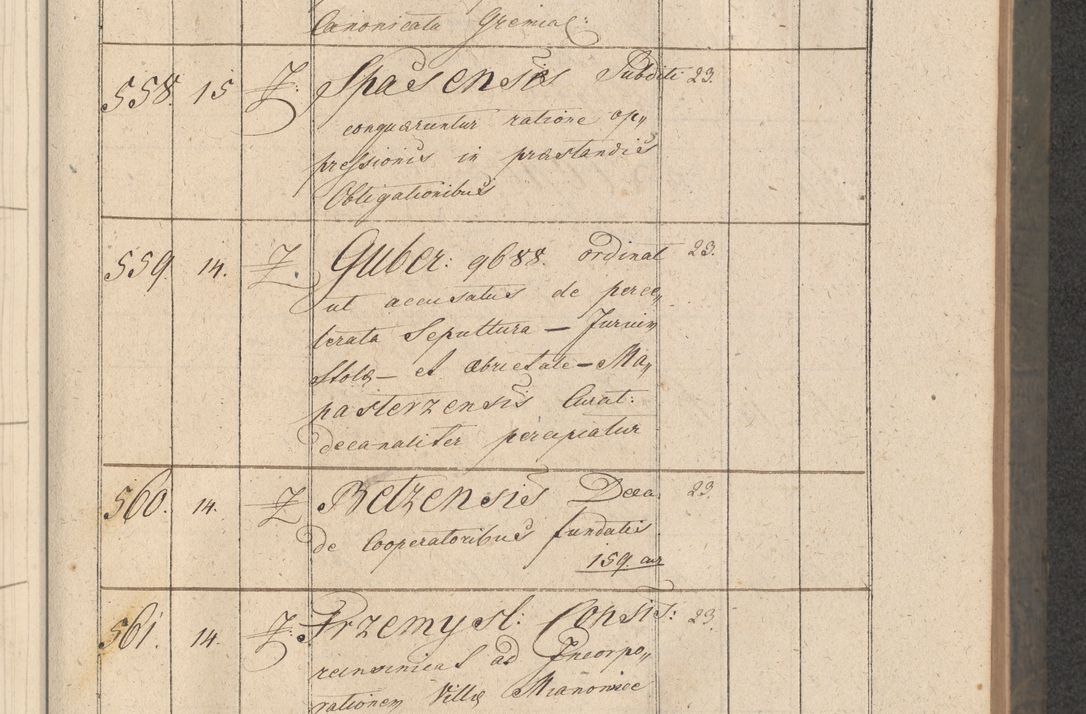 Canonicata Gremial:
558. 15 Z: Spasensis Subditi 23.
conquæruntur ratione op„
pressionis in præstandis
Obligationibus
559. 14. Z. Guber: 9688. ordinat 23.
ut accusatus de perce„
terata Sepultura —
Stolæ — et æbrietate — Ma„
pasterzensis Curat:
decanaliter percipiatur
560. 14. Z Betzensis Deca. 23.
de Cooperatoribus fundatis
159. cur
561. 14. Z: Przemysl: Consis: 23.
ad Incorpo„
rationem Villæ